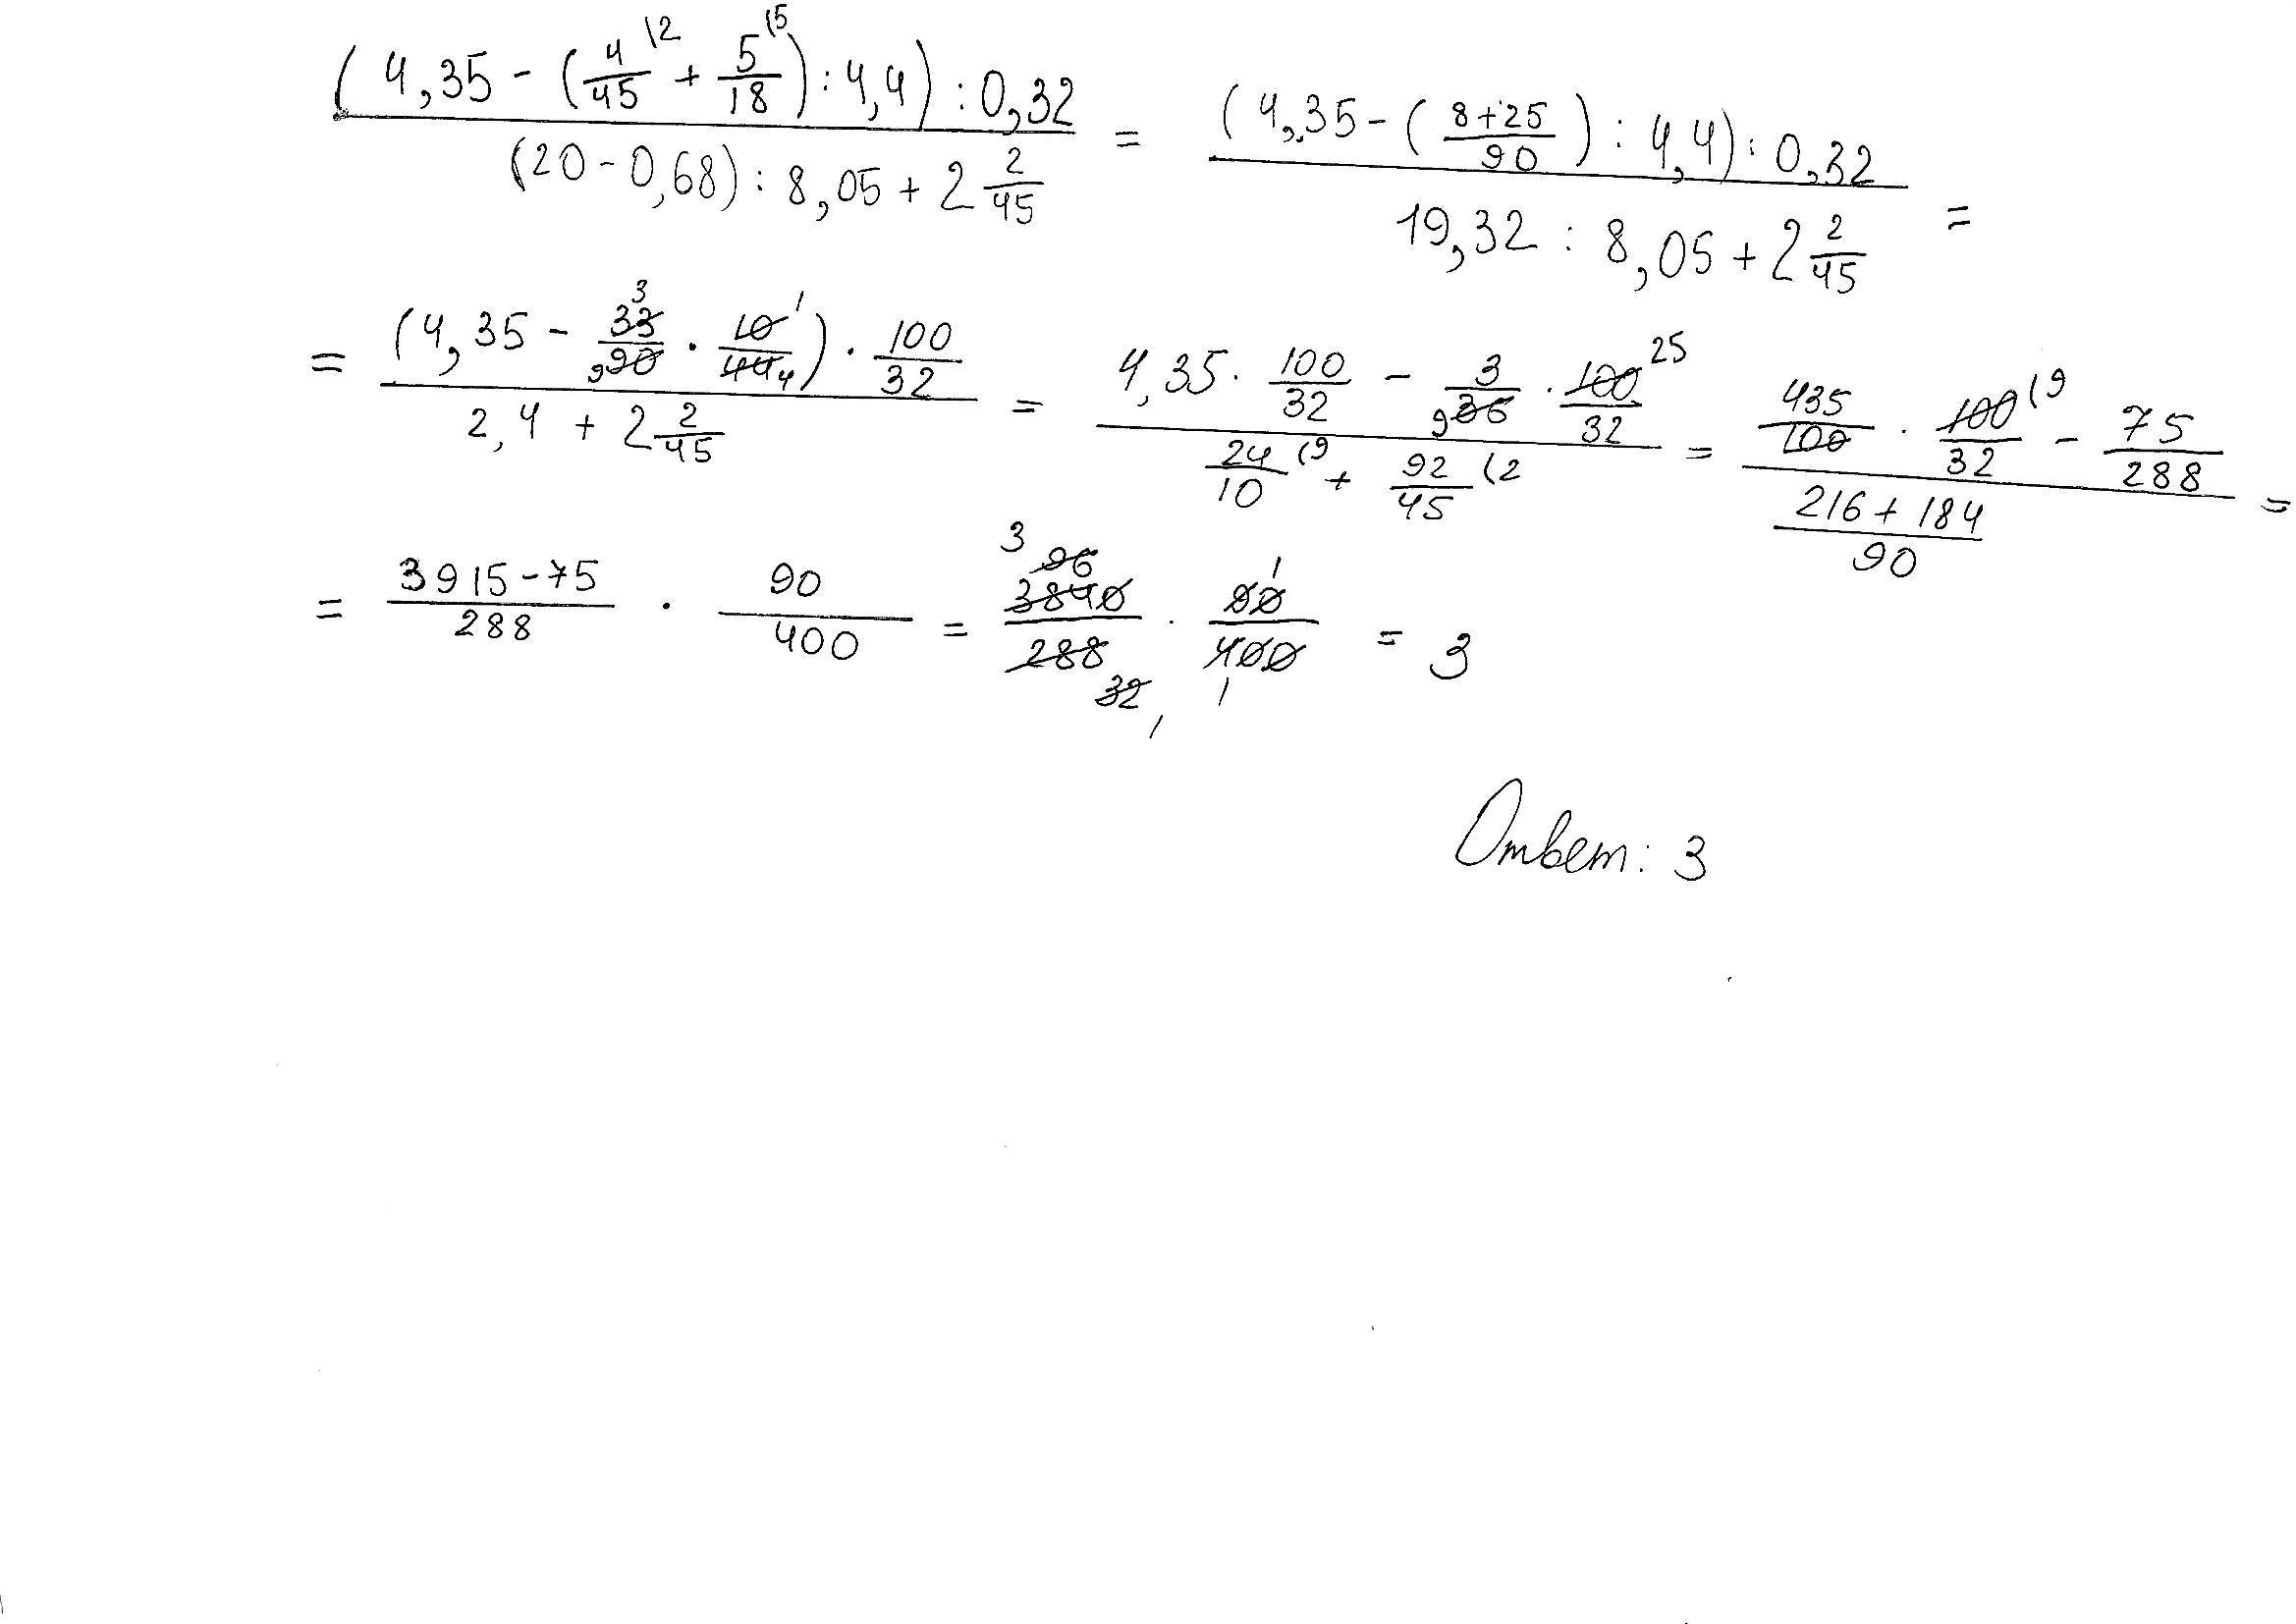 \frac{(4,35-(\frac{4}{45}^{\backslash 2}+\frac{5}{18}^{(5}):4,4):0,32}{(20-0,68):8,05+2\frac{2}{45}} = \frac{(4,35-(\frac{8+25}{90}):4,4):0,32}{19,32:8,05+2\frac{2}{45}} =
= \frac{(4,35-\frac{\cancel{33}^{3}}{\cancel{90}_{9}}\cdot\frac{\cancel{10}^{1}}{\cancel{44}_{4}})\cdot\frac{100}{32}}{2,4+2\frac{2}{45}} = \frac{4,35\cdot\frac{100}{32}-\frac{3}{\cancel{36}_{9}}\cdot\frac{\cancel{100}^{25}}{32}}{\frac{24}{10}^{(9}+\frac{92}{45}^{(2}} = \frac{\frac{435}{\cancel{100}}\cdot\frac{\cancel{100}}{32}^{(9}-\frac{75}{288}}{\frac{216+184}{90}} =
= \frac{3915-75}{288}\cdot\frac{90}{400} = \frac{\cancel{3840}^{\cancel{96}^{3}}}{\cancel{288}_{\cancel{32}_{1}}}\cdot\frac{\cancel{90}^{1}}{\cancel{400}_{1}} = 3
Ответ: 3